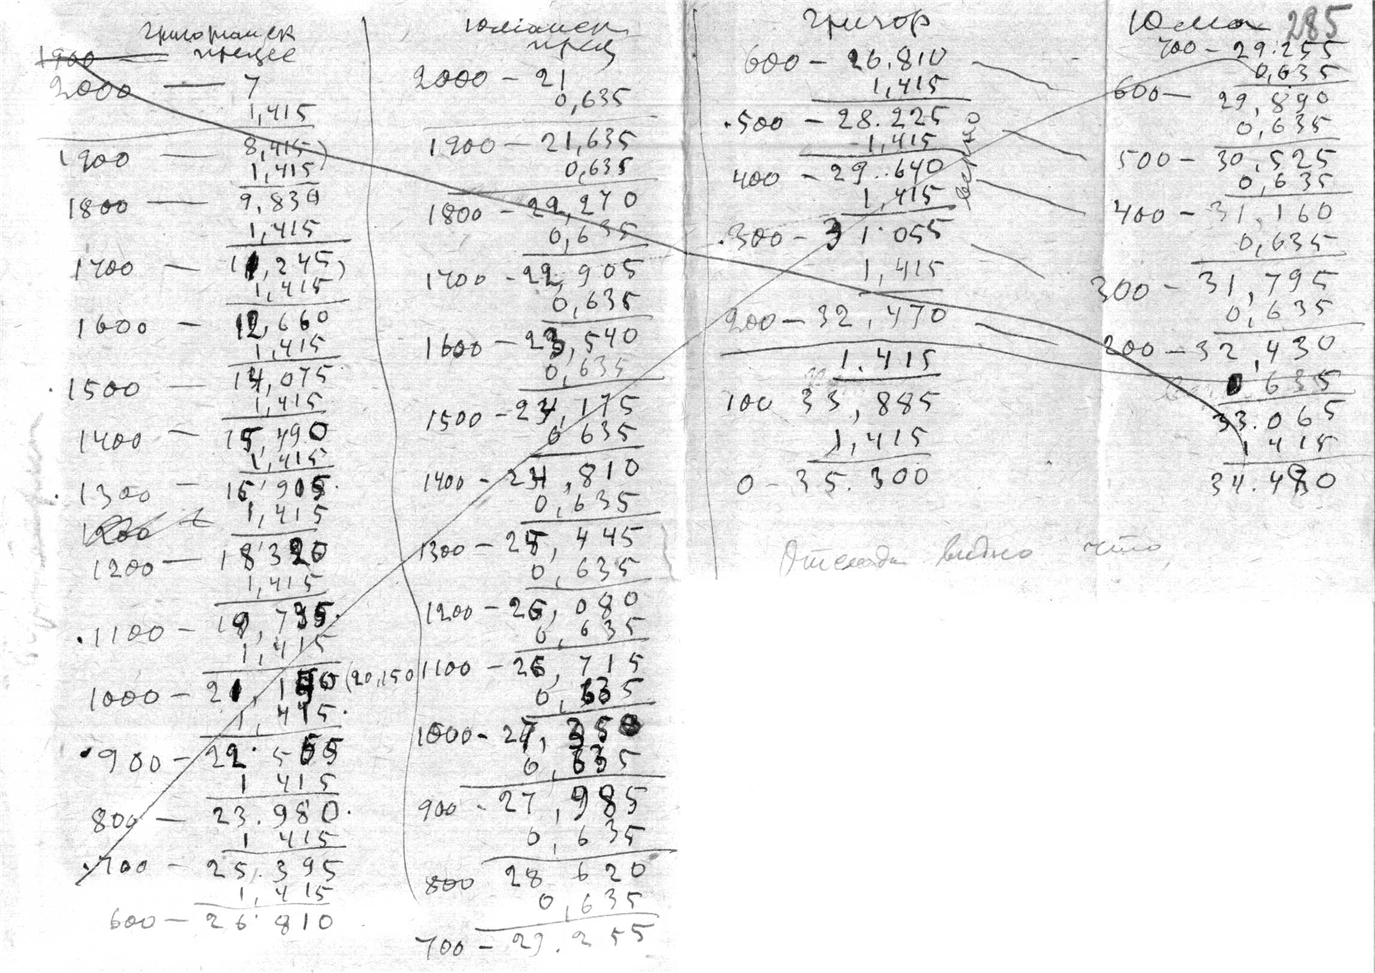 григориански
прецес
1900
2000 — 7
1,415
1900 — 8,415)
1,415
1800 — 9,830
1,415
1700 — 11,245)
1,415
1600 — 12,660
1,415
1500 — 14,075
1,415
1400 — 15,490
1,415
1300 — 16,905
1,415
1200
1200 — 18 320
1,415
1100 — 19,735
1,415
1000 — 21,150 (20,150
1,415
900 — 22 565
1 415
800 — 23.980
1 415
700 — 25.395
1,415
600 — 26 810
юлианск
прец
2000 — 21
0,635
1900 — 21,635
0,635
1800 — 22,270
0,635
1700 — 22,905
0,635
1600 — 23,540
0,635
1500 — 24,175
0 635
1400 — 24,810
0,635
1300 — 25,445
0,635
1200 — 26,080
0,635
1100 — 26,715
0,635
1000 — 27,350
0,635
900 — 27,985
0,635
800 28 620
0,635
700 — 29.255
григор
600 — 26.810
1,415
500 — 28.225
1,415
400 — 29.640
1,415
300 — 31.055
1,415
200 — 32,470
1.415
100 33,885
1,415
0 — 35.300
Отсюда видно что
285
Юлиа
700 — 29.255
0,635
600 — 29,890
0,635
500 — 30,525
0,635
400 — 31,160
0,635
300 — 31,795
0,635
200 — 32,430
0,635
33.065
1 415
34.480